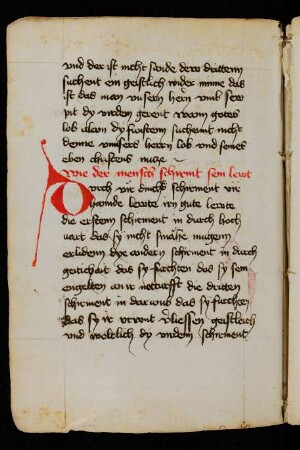 vnd der ist nicht sunde dew dritten
suchent ein geistlich wider mine das
ist das man vnsern hern vmb sew
pit dy werden gerent wann gotes
lob alain dy fursten suchent nicht
denne vnsers herren lob vnd seines
eben christens nucze
Wie der mensch schirmt sein lewt
Durch vir dinck schirment vir
hannde lewte ir gute lewte
die ersten schirment in durch hoch
uart das sy nicht smähe mugen
erliden dye andern schirment in durch
geticheit das sy furchten das sy sein
engelten an ir die dritten
schirment in dar das sy furchten
das sy ir vrewnt verliessen geistleich
vnd weltlich dy virden schirment